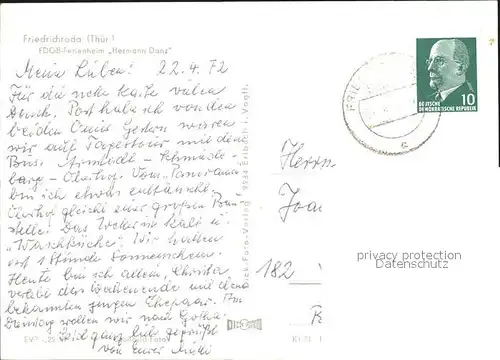 Friedrichroda (Thür.)
FDGB-Ferienheim „Hermann Danz"
Meine Lieben! 22.4.72
Für die nette Karte vielen
Dank. Post habe ich von den
beiden Omis. Gestern waren
wir auf Tagestour mit dem
Bus: Arnstadt – Schmiede-
– Oberhof. Vom „Panorama"
bin ich etwas enttäuscht.
Oberhof gleicht einer großen Bau-
stelle. Das Wetter ist kalt u.
„Waschküche". Wir hatten
erst 1 Stunde Sonnenschein.
Heute bin ich allein, Christa
verlebt das Wochenende mit einem
bekannten jungen Ehepaar. Am
Dienstag wollen wir nach Gotha.
Seid ganz lieb gegrüßt
von Eurer
EVP
Foto-Verlag 9934 Erlbach i. Vogtl.
10
DEUTSCHE
DEMOKRATISCHE REPUBLIK
FRIE
Herrn
Joa
182
privacy protection
Datenschutz